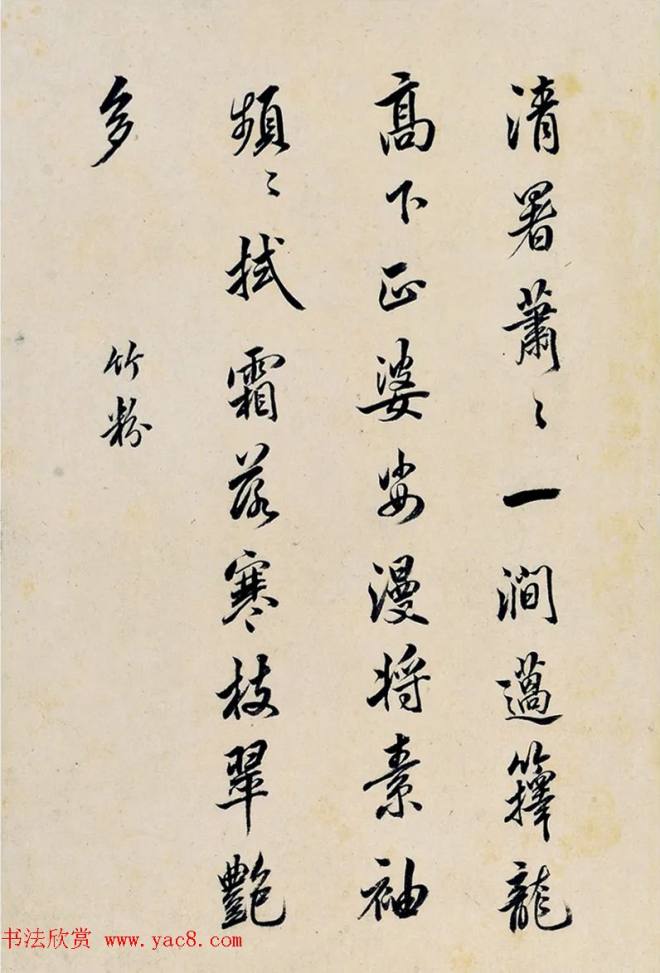 清署蕭〻一澗薖籜龍
高下正婆娑漫將素袖
頻〻拭霜落寒枝翠艷
多
竹粉
书法欣赏 www.yac8.com